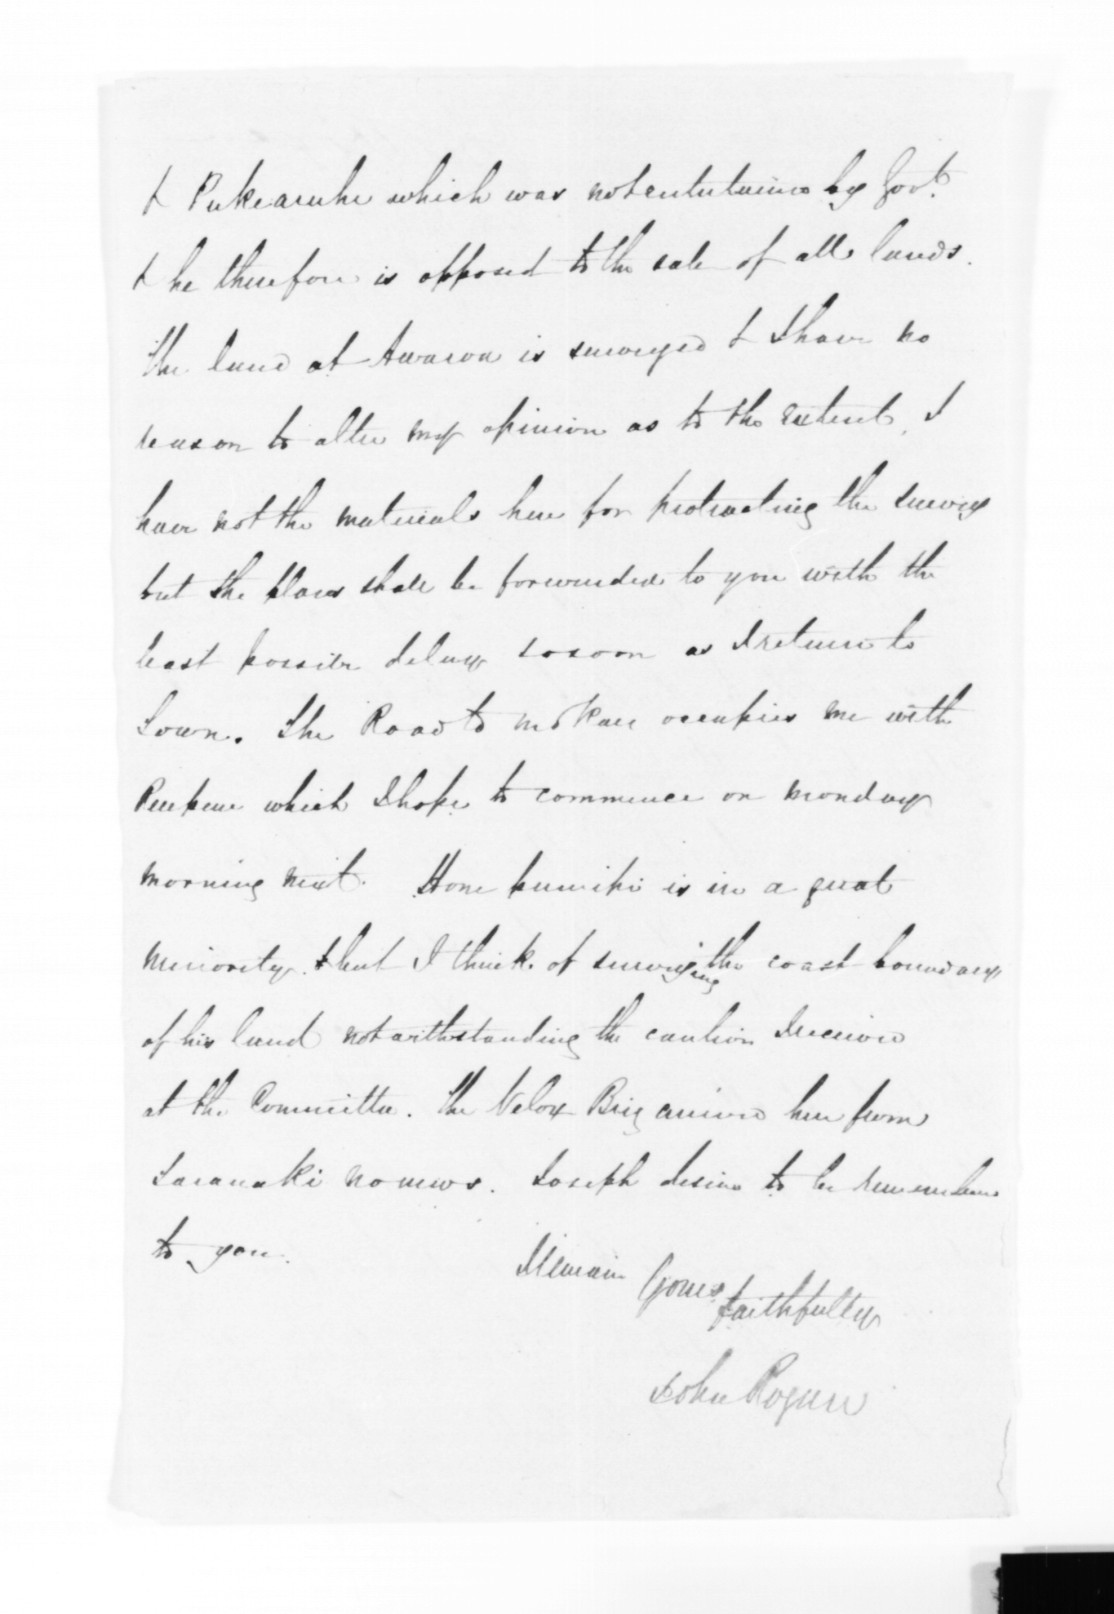 & Pukearuhe which was not entertained by Govt.
& he therefore is opposed to the sale of all lands.
The land at Awaroa is surveyed & I have no
reason to alter my opinion as to the extent, I
have not the materials here for protracting the survey
but the plans shall be forwarded to you with the
least possible delay so soon as I return to
Town. The Road to Mokau occupies me with
which I hope to commence on Monday
morning next. Hone is in a great
minority but I think of surveying the coast boundary
of his land notwithstanding the caution I received
at the Committee. The Velox Brig arrived here from
Taranaki no news. Joseph desires to be remembered
to you.
I remain Yours
faithfully
John Rogan